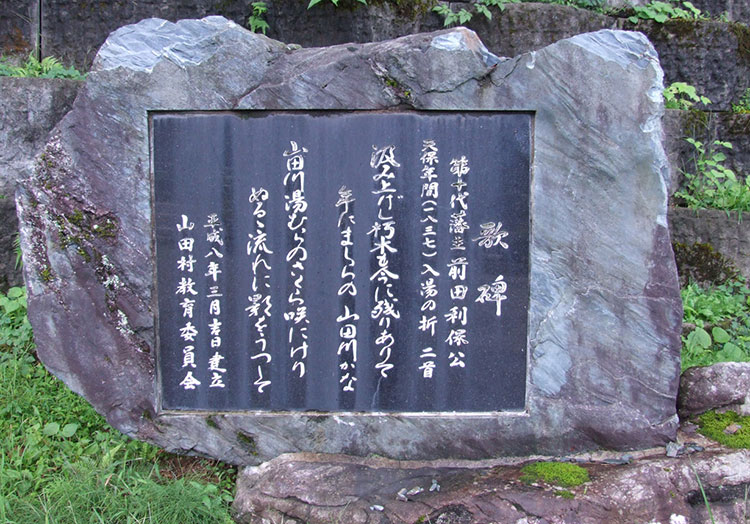 歌碑
第十代藩主 前田利保公
天保年間(一八三七)入湯の折 二首
汲み上げし朽木も今に残りありて
年たましらの 山田川かな
山田川湯むらのさくら咲にけり
ぬるゝ流れに影をうつして
平成八年三月吉日建立
山田村教育委員会